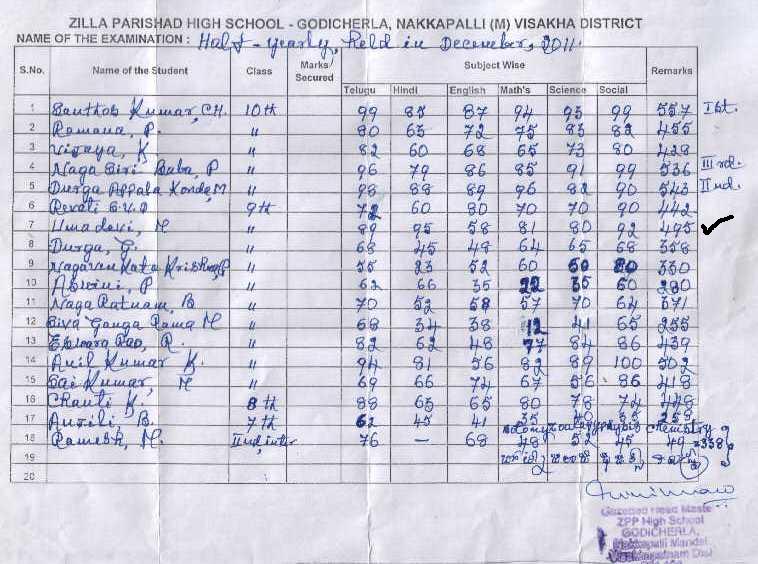 ZILLA PARISHAD HIGH SCHOOL - GODICHERLA, NAKKAPALLI (M) VISAKHA DISTRICT
NAME OF THE EXAMINATION : Half - yearly, Held in December, 2011.
S.No. Name of the Student Class Marks Secured Subject Wise Remarks
Telugu Hindi English Math's Science Social
1 Santhosh Kumar, CH. 10th 99 85 87 94 93 99 557 Ist.
2 Ramana, P. " 80 63 72 75 83 82 455
3 Vijaya, K " 82 60 68 65 73 80 428
4 Naga Siri Baba, P " 96 79 86 85 91 99 536 IIIrd.
5 Durga Appala Konda, M " 98 88 89 96 82 90 543 IInd.
6 Revati 9th 72 60 80 70 70 90 442
7 Uma devi, M " 89 95 58 81 80 92 495 ✓
8 Durga, G. " 68 45 48 64 65 68 358
9 Nagavenkata Krishna, P " 55 23 52 60 60 80 330
10 Aswini, P " 62 66 35 22 35 60 280
11 Naga Ratnam, B " 70 52 58 57 70 64 371
12 Siva Ganga Rama M " 68 34 38 12 41 65 255
13 Eswara Rao, R. " 82 62 48 77 84 86 439
14 Anil Kumar K. " 94 81 56 82 89 100 502
15 Sai Kumar, M " 69 66 74 67 56 86 418
16 Chanti K. 8th 88 65 65 80 78 72 448
17 B. 7th 62 45 41 35 40 35 258
Botony Zoology physics chemistry
18 Ramesh, M. IInd, inter 76 — 68 48 52 45 49 =338
19
20
Gazetted Head Maste
ZPP High School
GODICHERLA,
Nakkapalli Mandal
Visakhapatnam Dist